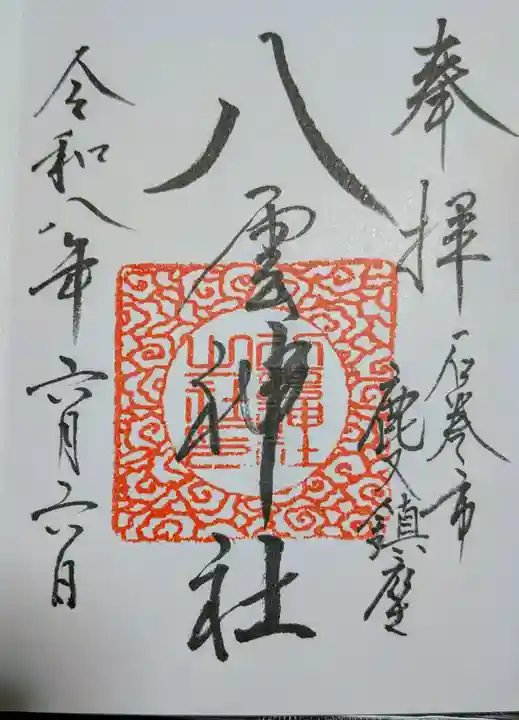 奉拝
石巻市
鹿又鎮座
八雲神社
令和八年六月六日